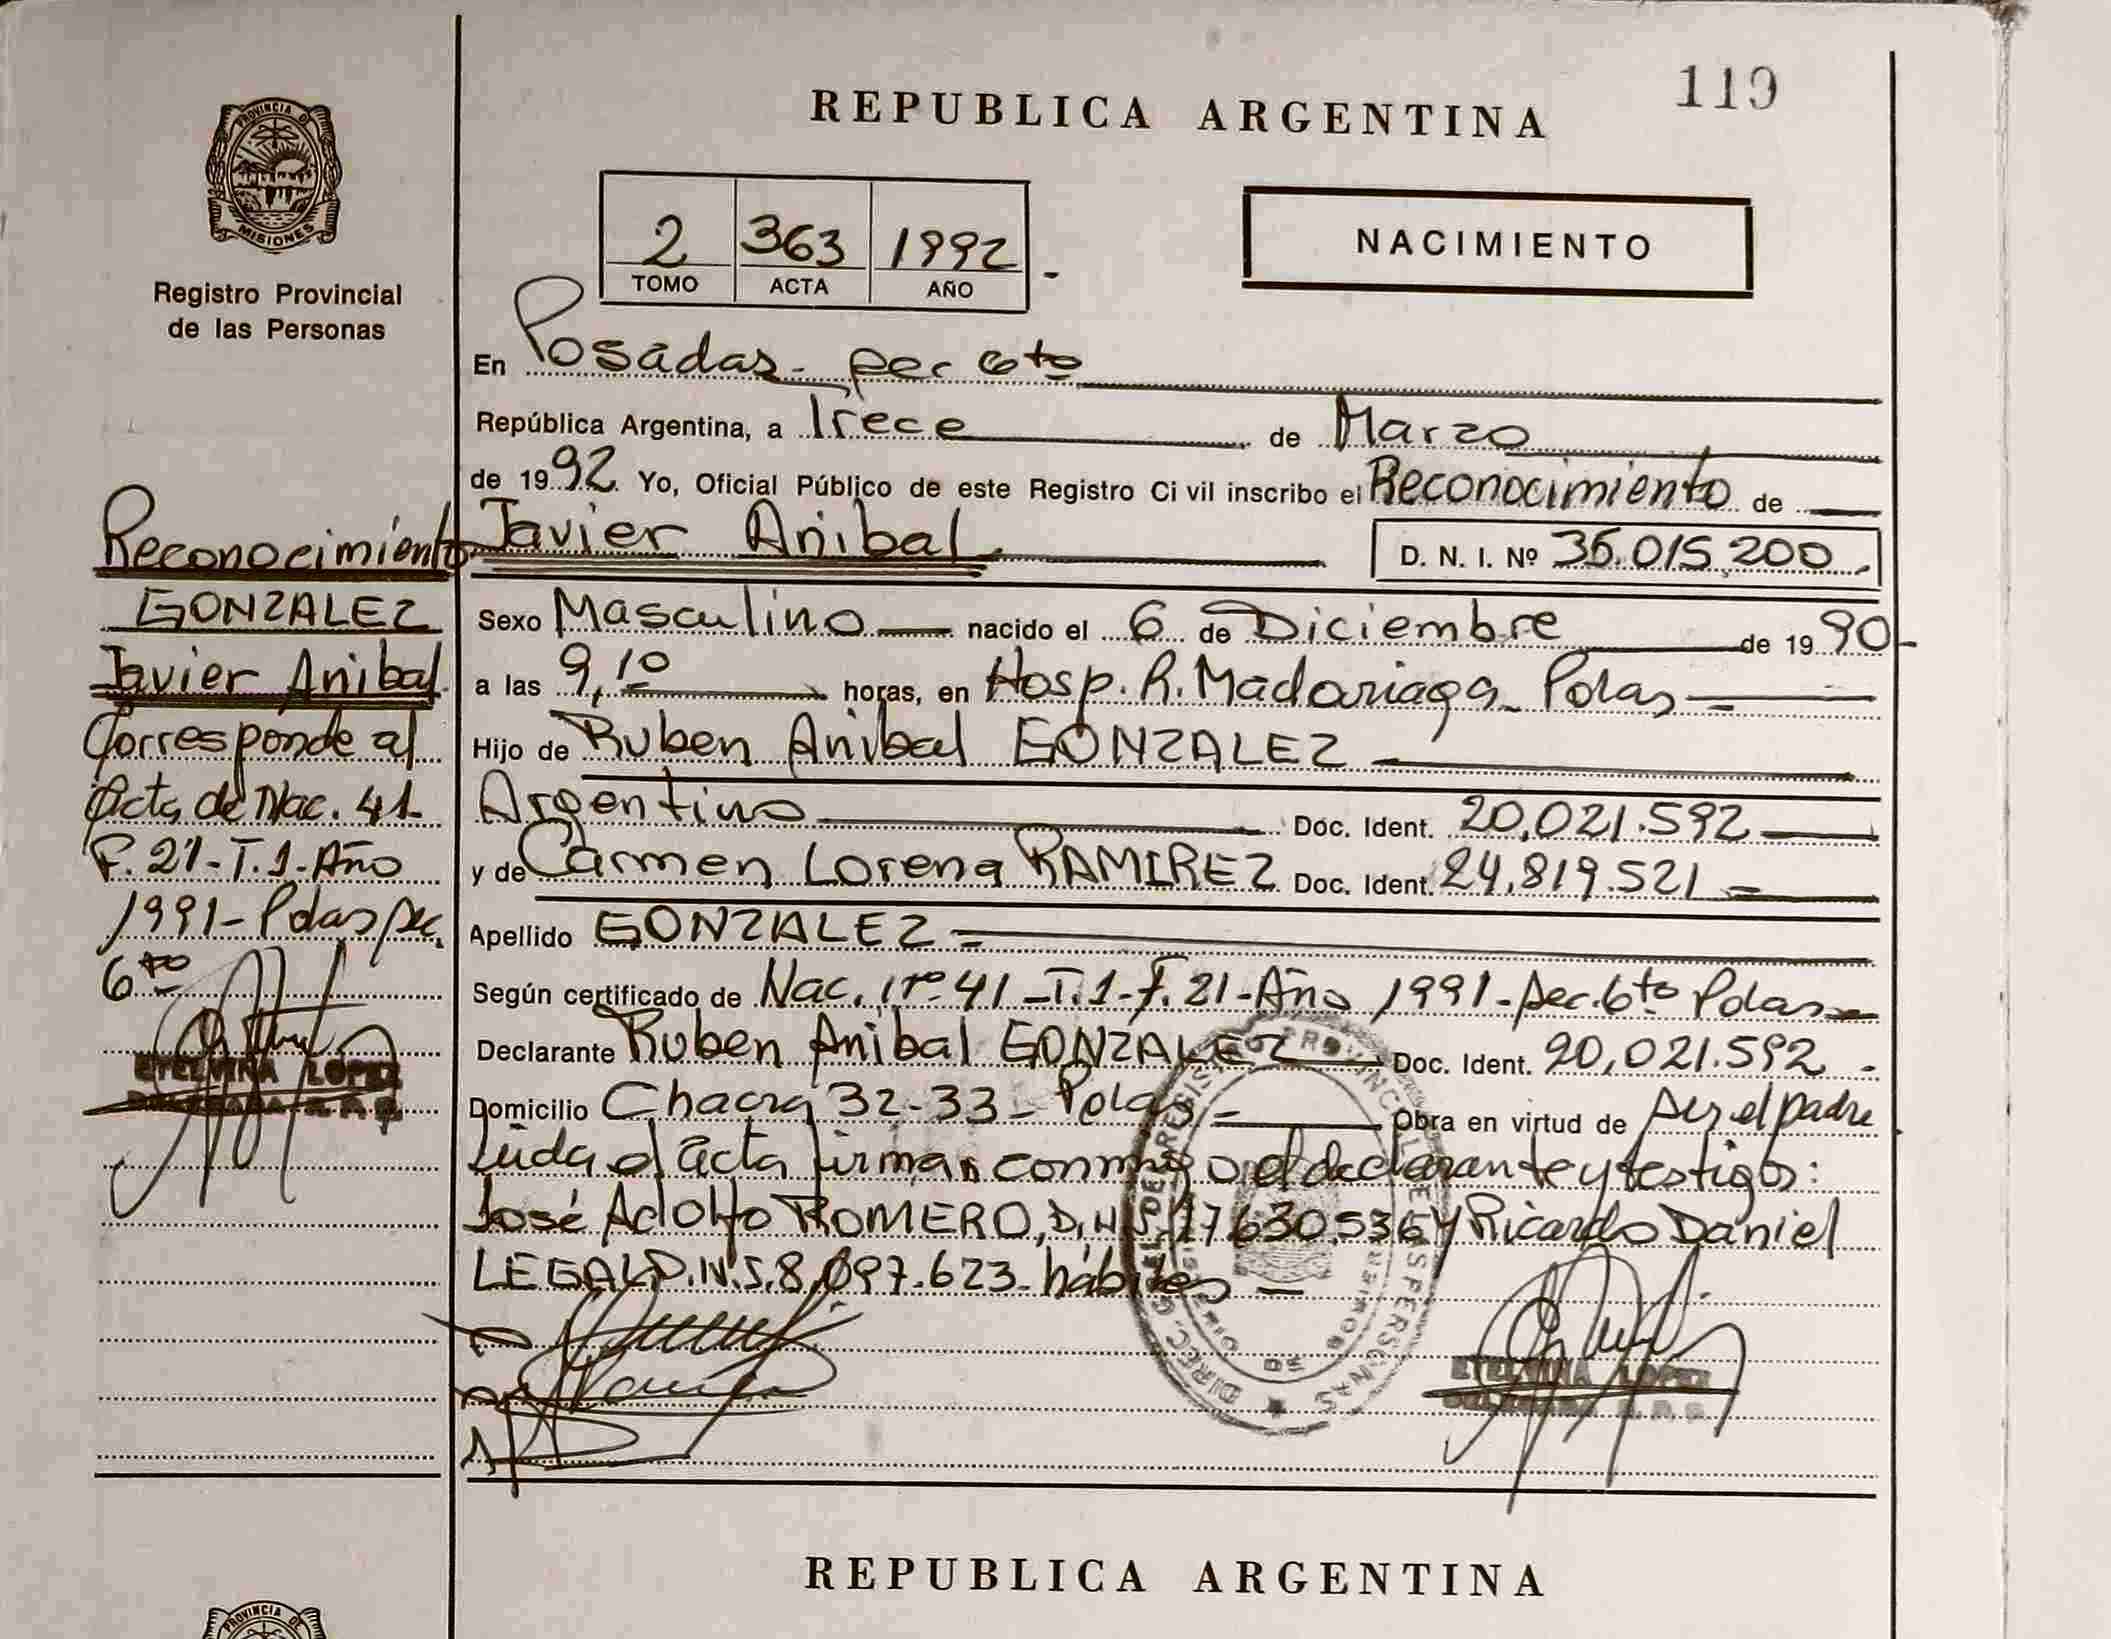 119
REPUBLICA ARGENTINA
PROVINCIA DE
MISIONES
Registro Provincial
de las Personas
2 363 1992
TOMO ACTA AÑO
NACIMIENTO
En Posadas - sec 6to
República Argentina, a Trece de Marzo
de 1992. Yo, Oficial Público de este Registro Civil inscribo el Reconocimiento de
Javier Anibal D. N. I. Nº 36.015.200
Sexo Masculino nacido el 6 de Diciembre de 1990
a las 9,10 horas, en Hosp. R. Madariaga - Pdas
Hijo de Ruben Anibal GONZALEZ
Argentino Doc. Ident. 20,021.592
y de Carmen Lorena RAMIREZ Doc. Ident. 24,819.521
Apellido GONZALEZ
Según certificado de Nac. nº 41 - T.1 - F. 21 - Año 1991 - sec. 6to Pdas
Declarante Ruben Anibal GONZALEZ Doc. Ident. 20,021.592
Domicilio Chacra 32-33 - Pdas Obra en virtud de ser el padre
Leida el acta firman conmigo el declarante y testigos:
José Adolfo ROMERO, D.N.I. 17630.536 y Ricardo Daniel
LEGAL D.N.I. 8,097.623 - hábiles
Reconocimiento
GONZALEZ
Javier Anibal
Corresponde al
Acta de Nac. 41
F. 21 - T. 1 - Año
1991 - Pdas sec.
6to
ETELVINA LOPEZ
DELEGADA
ETELVINA LOPEZ
DELEGADA
REPUBLICA ARGENTINA
PROVINCIA DE